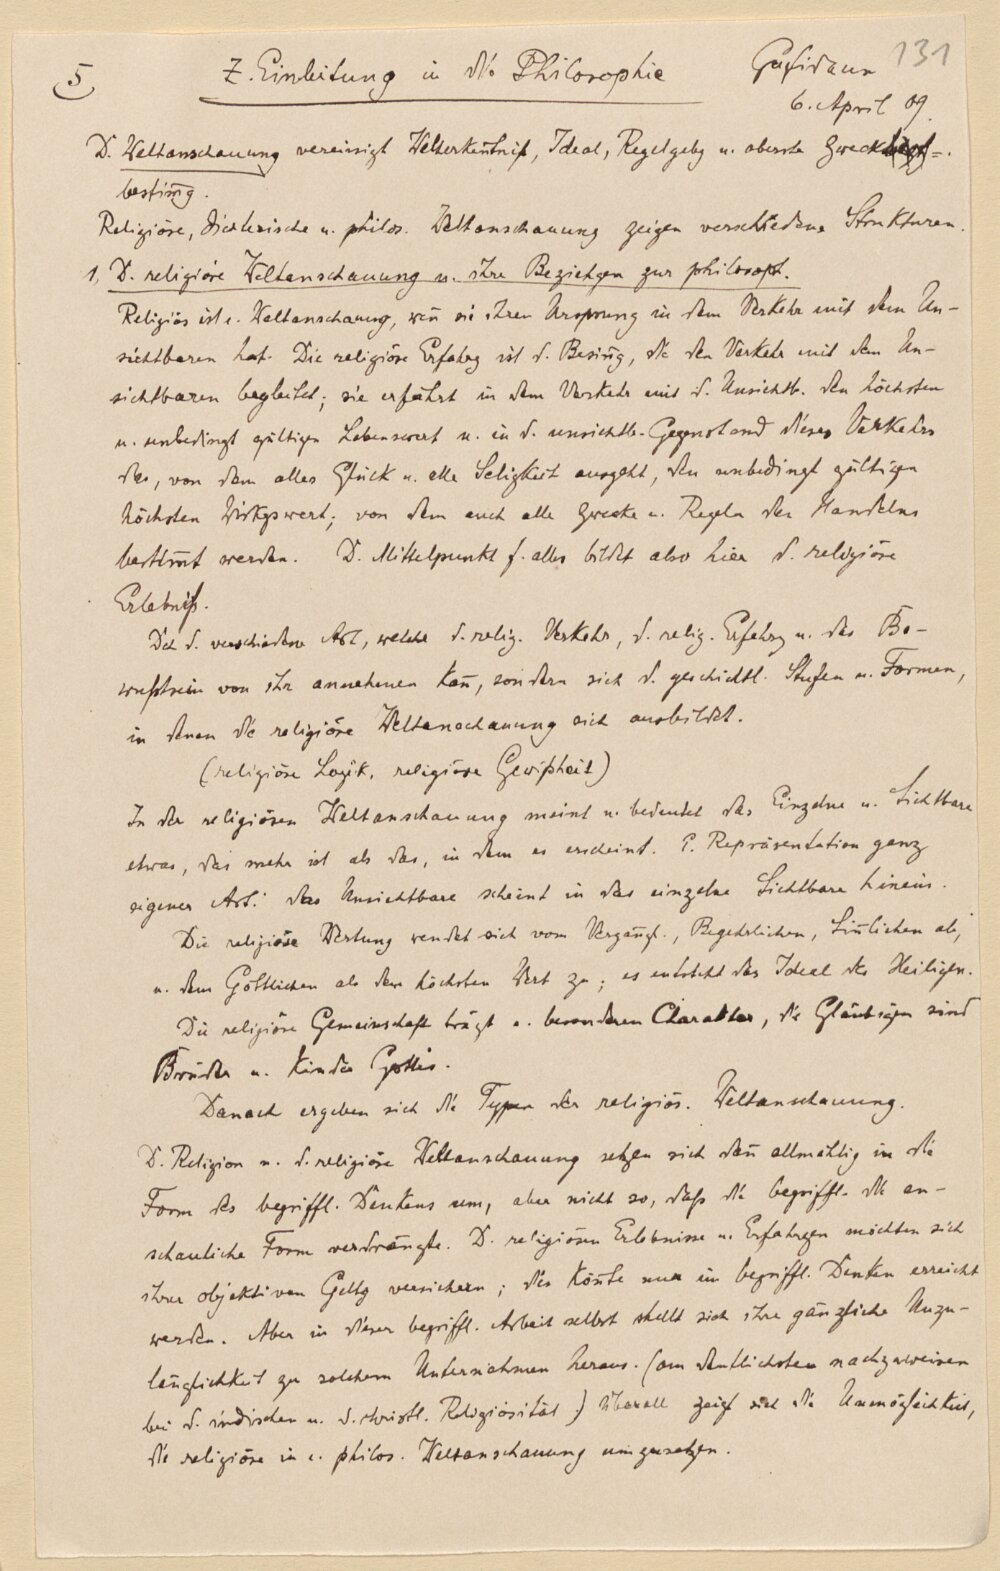 5 Z. Einleitung in die Philosophie Gufidaun 131
6. April 09.
D. Weltanschauung vereinigt Welterkentniß, Ideal, Regelgebg u. oberste Zweck=
bestimg.
Religiöse, dichterische u. philos. Weltanschauung zeigen verschiedene Strukturen.
1, D. religiöse Weltanschauung u. ihre Beziehgen zur philosoph.
Religiös ist e. Weltanschauung, wen sie ihren Ursprung in dem Verkehr mit dem Un-
sichtbaren hat. Die religiöse Erfahrg ist d. Besinng, die den Verkehr mit dem Un-
sichtbaren begleitet; sie erfährt in dem Verkehr mit d. Unsichtb. den höchsten
u. unbedingt gültigen Lebenswert u. in d. unsichtb. Gegenstand dieses Verkehrs
das, von dem alles Glück u. alle Seligkeit ausgeht, den unbedingt gültigen
höchsten Wirkgswert; von dem auch alle Zwecke u. Regeln des Handelns
bestimt werden. D. Mittelpunkt f. alles bildet also hier d. religiöse
Erlebniß.
Dch d. verschiedene Art, welche d. relig. Verkehr, d. relig. Erfahrg u. das Be-
wußtsein von ihr annehmen kan, sondern sich d. geschichtl. Stufen u. Formen,
in denen die religiöse Weltanschauung sich ausbildet.
(religiöse Logik, religiöse Gewißheit)
In der religiösen Weltanschauung meint u. bedeutet das Einzelne u. Sichtbare
etwas, das mehr ist als das, in dem es erscheint. E. Repräsentation ganz
eigener Art: das Unsichtbare scheint in das einzelne Sichtbare hinein.
Die religiöse Wertung wendet sich vom Vergängl., Begehrlichen, Sinlichen ab,
u. dem Göttlichen als dem höchsten Wert zu; es entsteht das Ideal des Heiligen.
Die religiöse Gemeinschaft trägt e. besonderen Charakter, die Gläubigen sind
Brüder u. Kinder Gottes.
Danach ergeben sich die Typen der religiös. Weltanschauung.
D. Religion u. d. religiöse Weltanschauung setzen sich dan allmählig in die
Form des begriffl. Denkens um, aber nicht so, daß die begriffl. die an-
schauliche Form verdrängte. D. religiösen Erlebnisse u. Erfahrgen möchten sich
ihrer objektiven Geltg versichern; dies könte nur im begriffl. Denken erreicht
werden. Aber in dieser begriffl. Arbeit selbst stellt sich ihre gänzliche Unzu-
länglichkeit zu solchem Unternehmen heraus. (am deutlichsten nachzuweisen
bei d. indischen u. d. christl. Religiösität) Überall zeigt sich die Unmöglichkeit,
die religiöse in e. philos. Weltanschauung umzusetzen.